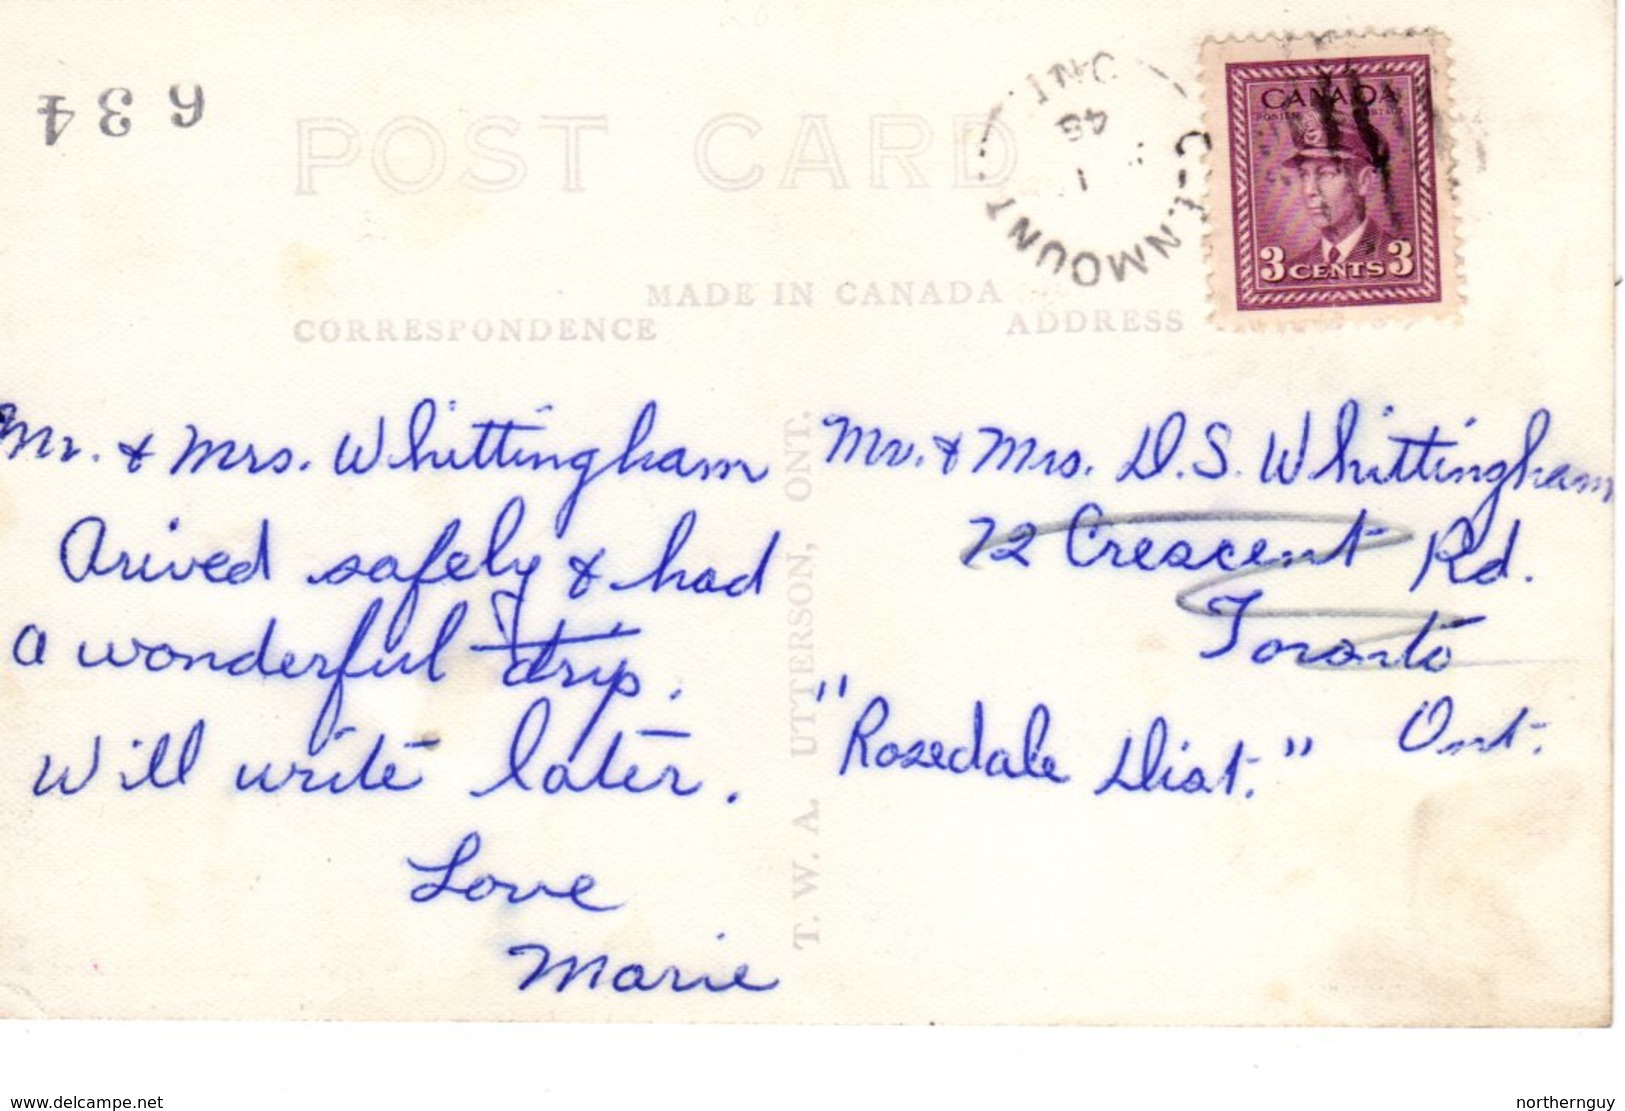 634
POST CARD
MADE IN CANADA
CORRESPONDENCE
ADDRESS
ONT.
48
1
GLENMOUNT
CANADA
3 CENTS 3
Mr. & Mrs. Whittingham
Arived safely & had
a wonderful trip.
Will write later.
Love
Marie
T. W. A. UTTERSON, ONT.
Mr. & Mrs. D. S. Whittingham
72 Crescent Rd.
Toronto
"Rosedale Dist." Ont.
www.delcampe.net
northernguy